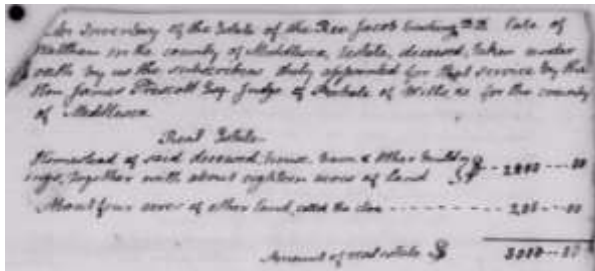 An Inventory of the Estate of the Rev. Jacob Cushing D.D. late of
Waltham in the county of Middlesex, Estate, deceased, taken under
oath by us the subscribers duly appointed for that service by the
Hon James Prescott Esq. Judge of Probate of Wills &c for the county
of Middlesex
Real Estate.
Homestead of said deceased, house, barn & other build
ings, together with about eighteen acres of land $ -- 2800 -- 00
About four acres of other land, called the - - - - - - - - 200 -- 00
Amount of real estate $ 3000 -- 00